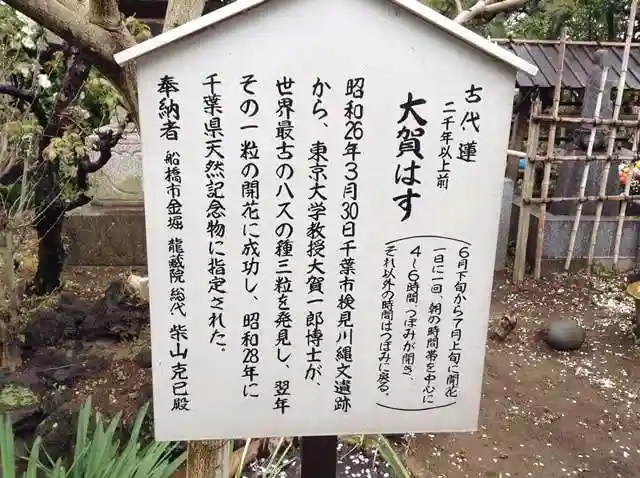 古代蓮
二千年以上前
大賀はす
6月下旬から7月上旬に開花
一日に一回、朝の時間帯を中心に
4〜6時間、つぼみが開き、
それ以外の時間はつぼみに戻る。
昭和26年3月30日千葉市検見川縄文遺跡
から、東京大学教授大賀一郎博士が、
世界最古のハスの種三粒を発見し、翌年
その一粒の開花に成功し、昭和28年に
千葉県天然記念物に指定された。
奉納者 船橋市金堀 龍蔵院 総代 柴山克己殿